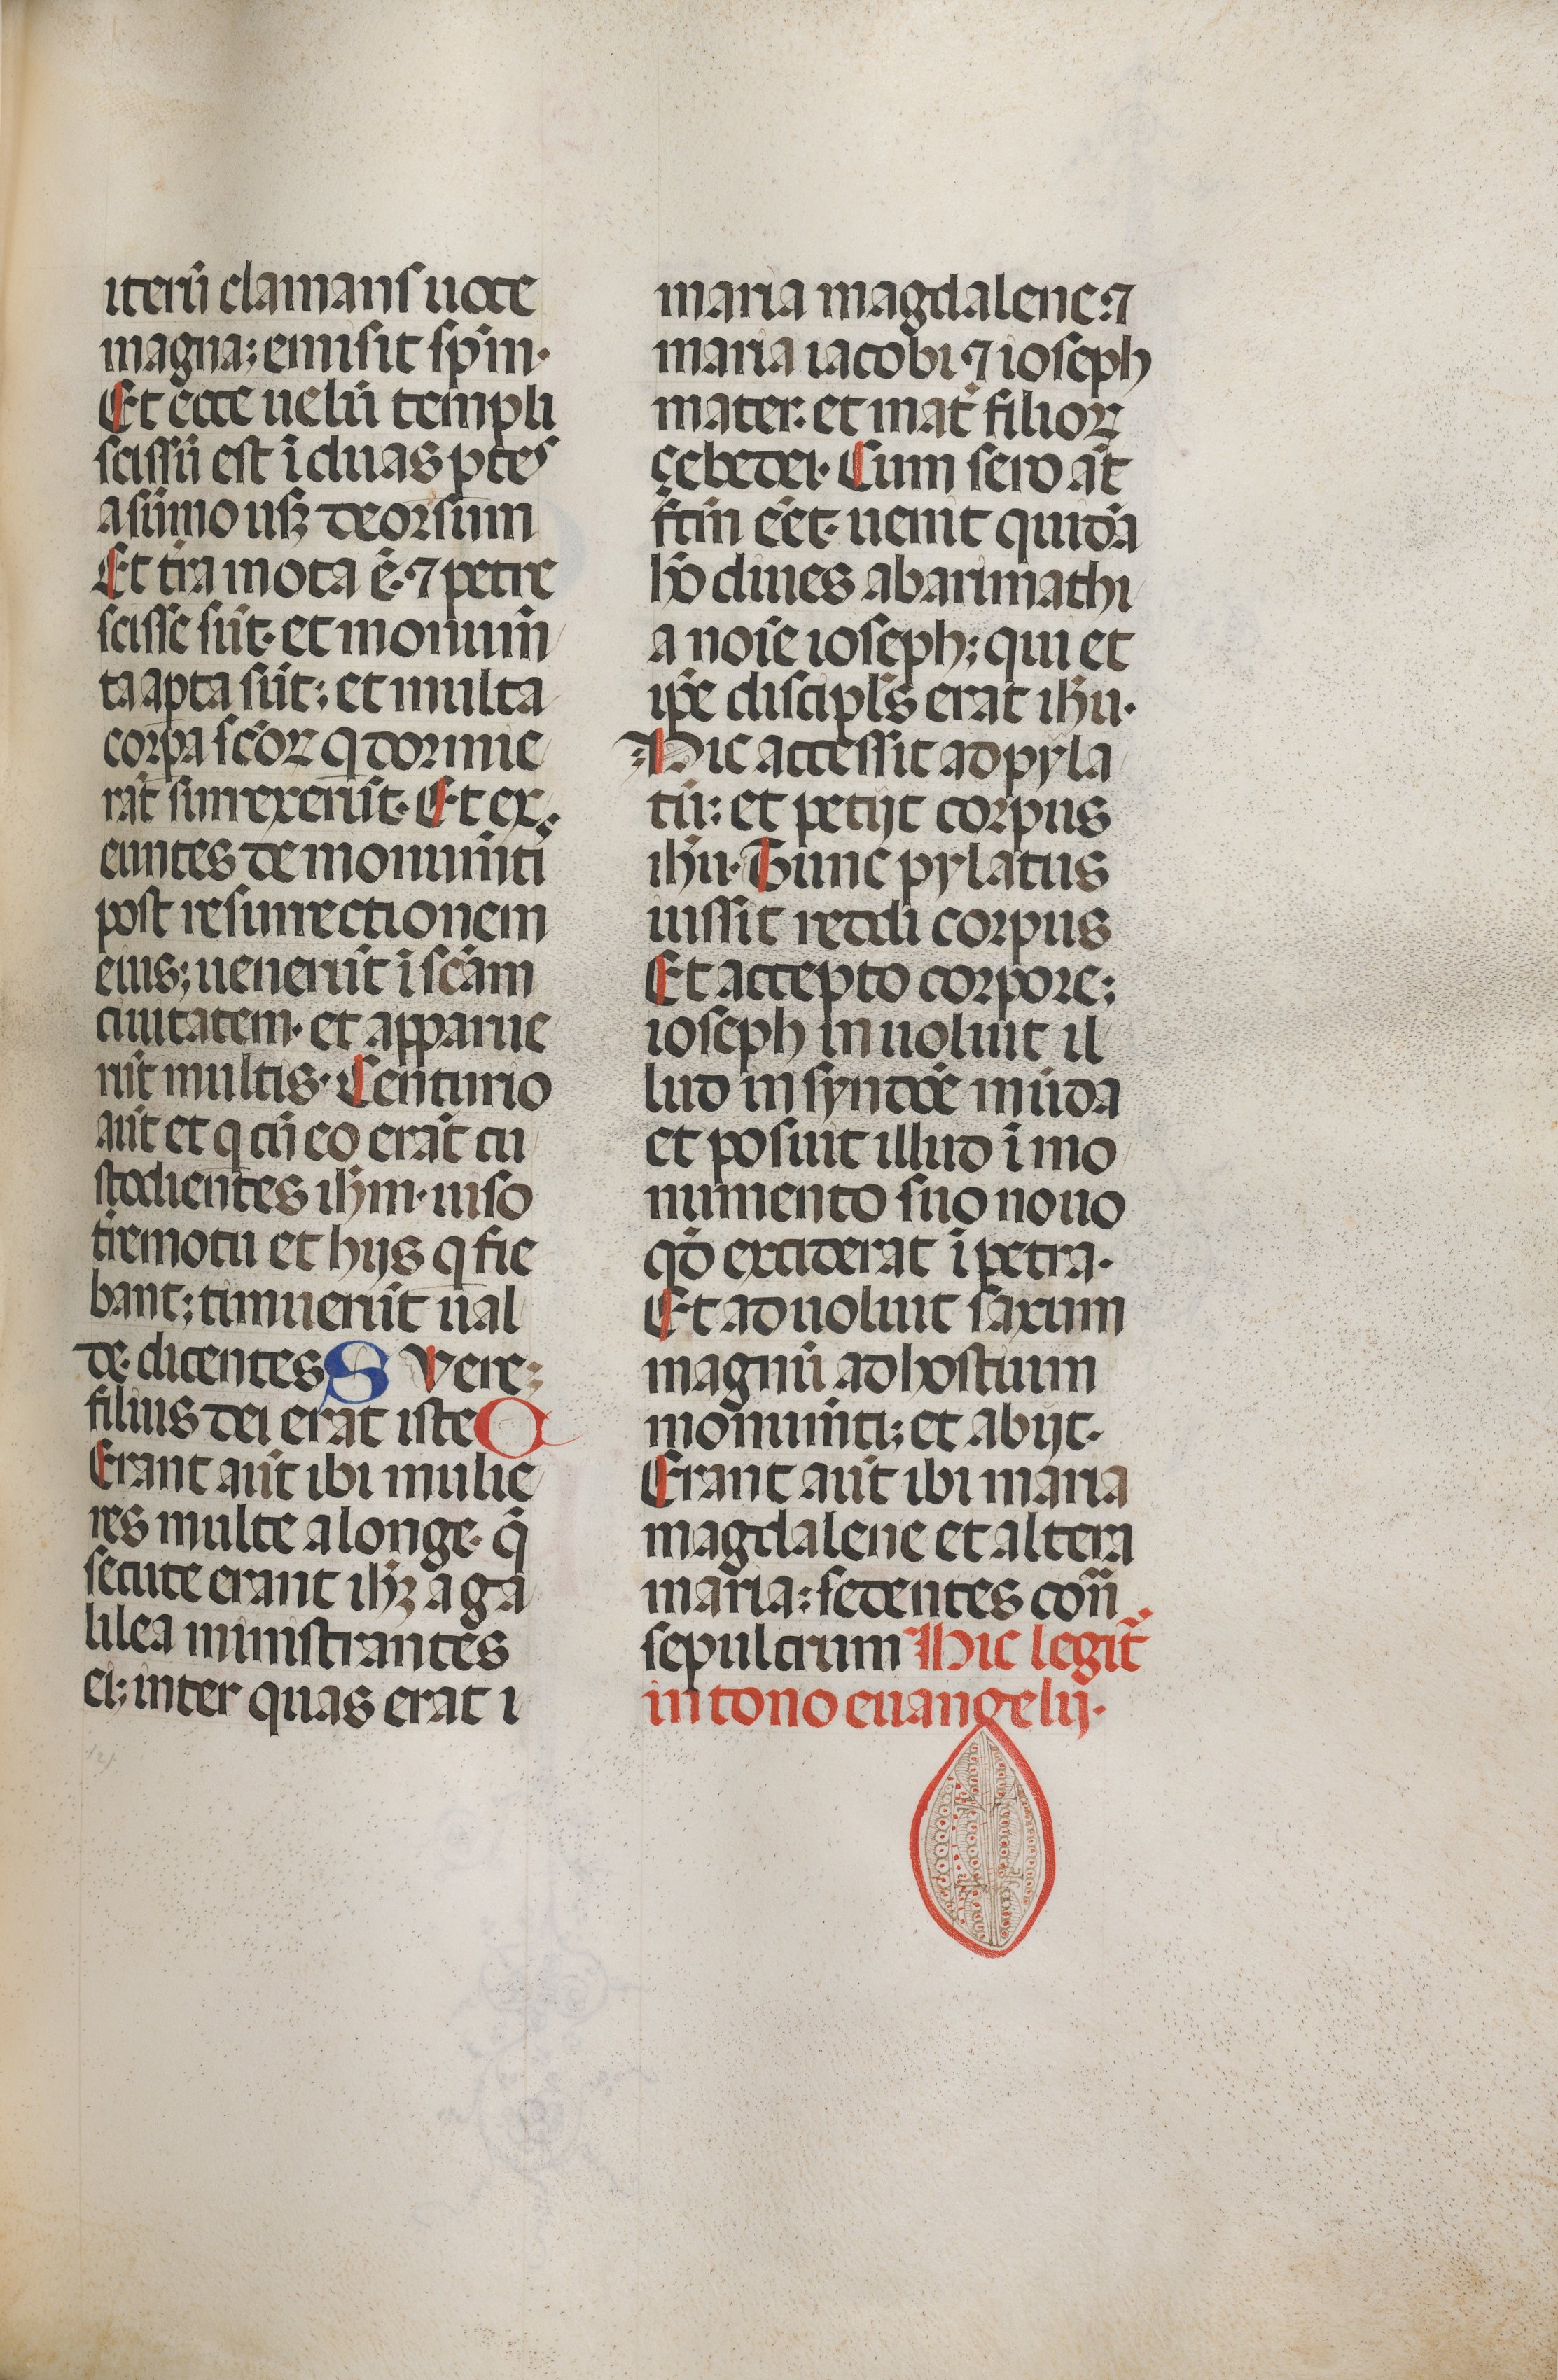 iterū clamans uoce
magna; emisit sp̄m·
Et ecce uelū templi
scissū est ī duas ꝑtes
a sūmo usqꝫ deorsum
Et t̄ra mota ē· ⁊ petre
scisse sūt· et monum̄
ta apta sūt; et multa
corꝑa sc̄oꝝ q̄ dormie
rāt surrexerūt· Et ex
euntes de monum̄ti
post resurrectionem
eius; uenerūt ī sc̄am
ciuitatem· et apparue
rūt multis· Centurio
aūt et q̄ cū eo erāt cu
stodientes ih̄m· uiso
t̄remotu et hijs q̄ fie
bant; timuerūt ual
de· dicentes S Vere
filius dei erat iste C
Erant aūt ibi mulie
res multe a longe· q̄
secute erant ih̄ꝫ a ga
lilea ministrantes
ei; inter quas erat i
maria magdalene: ⁊
maria iacobi ⁊ ioseph
mater· et mat̄ filioꝝ
çebedei· Cum sero āt
f̄cm eēt· uenit quidā
hō diues abarimathi
a noīe ioseph; qui et
ip̄e discipl̄s erat ih̄u·
Hic accessit ad pyla
tū: et petijt corpus
ih̄u· Tunc pylatus
iussit reddi corpus
Et accepto corpore;
ioseph inuoluit il
lud in syndōe mūda
et posuit illud ī mo
numento suo nouo
qd̄ exciderat ī petra·
Et aduoluit saxum
magnū ad hostium
monum̄ti; et abijt·
Erant aūt ibi maria
magdalene et altera
maria: sedentes con̄
sepulcrum Hic legit̄
in tono euangelij·